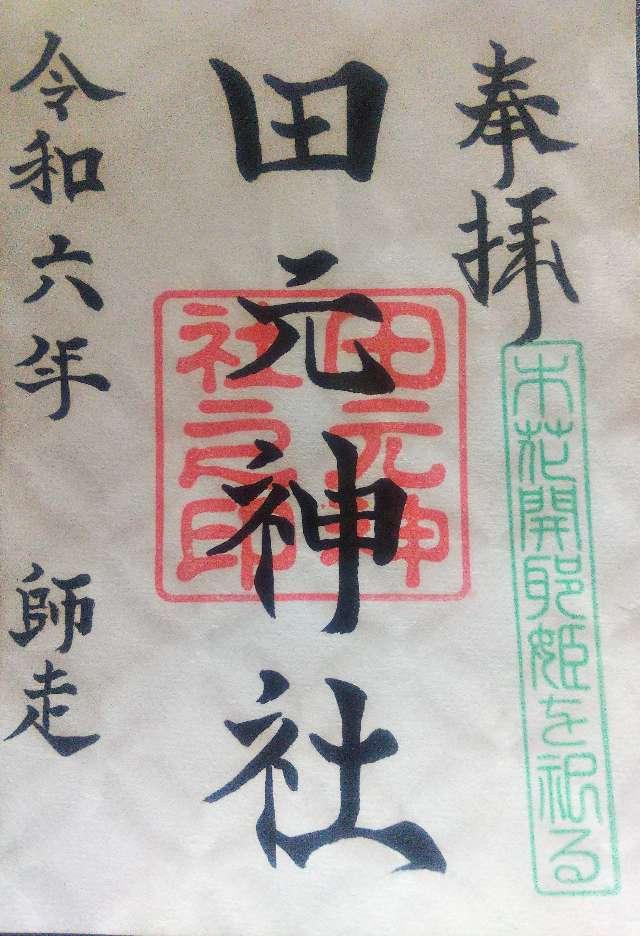 奉拝
木花開耶姫を祀る
田元神社
田元神
社之印
令和六年 師走